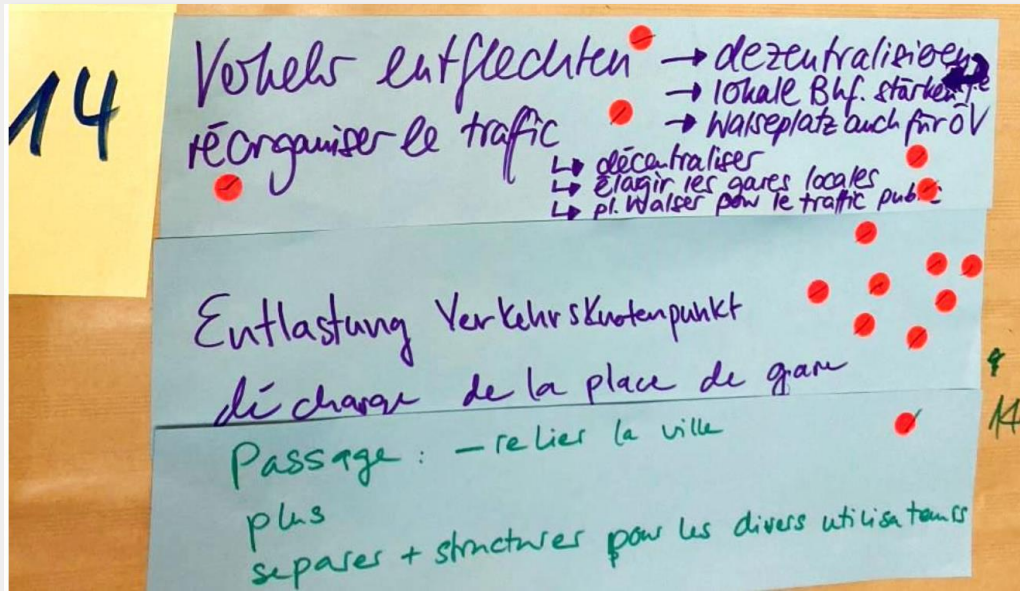 14
Verkehr entflechten → dezentralisieren
→ lokale Bhf. stärken
→ Walserplatz auch für ÖV
réorganiser le traffic
↳ décentraliser
↳ élagir les gares locales
↳ pl. Walser pour le traffic public
Entlastung Verkehrsknotenpunkt
décharge de la place de gare
Passage : – relier la ville
plus
separer + structurer pour les divers utilisateurs